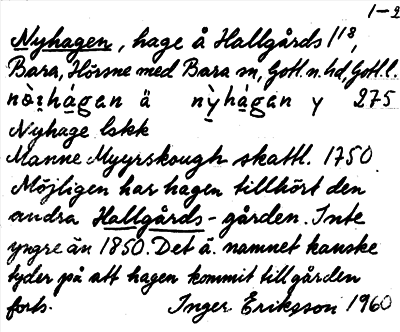 1-2
Nyhagen, hage å Hallgårds 1¹⁸,
Bara, Hörsne med Bara sn, Gotl. n. hd, Gotl. l.
nò̤ɪhá̤gɛn ä nỳ̤há̤gɛn y 275
Nyhage lskk
Manne Myyrskough skattl. 1750
Möjligen har hagen tillhört den
andra Hallgårds-gården. Inte
yngre än 1850. Det ä. namnet kanske
tyder på att hagen kommit till gården
forts. Inger Eriksson 1960